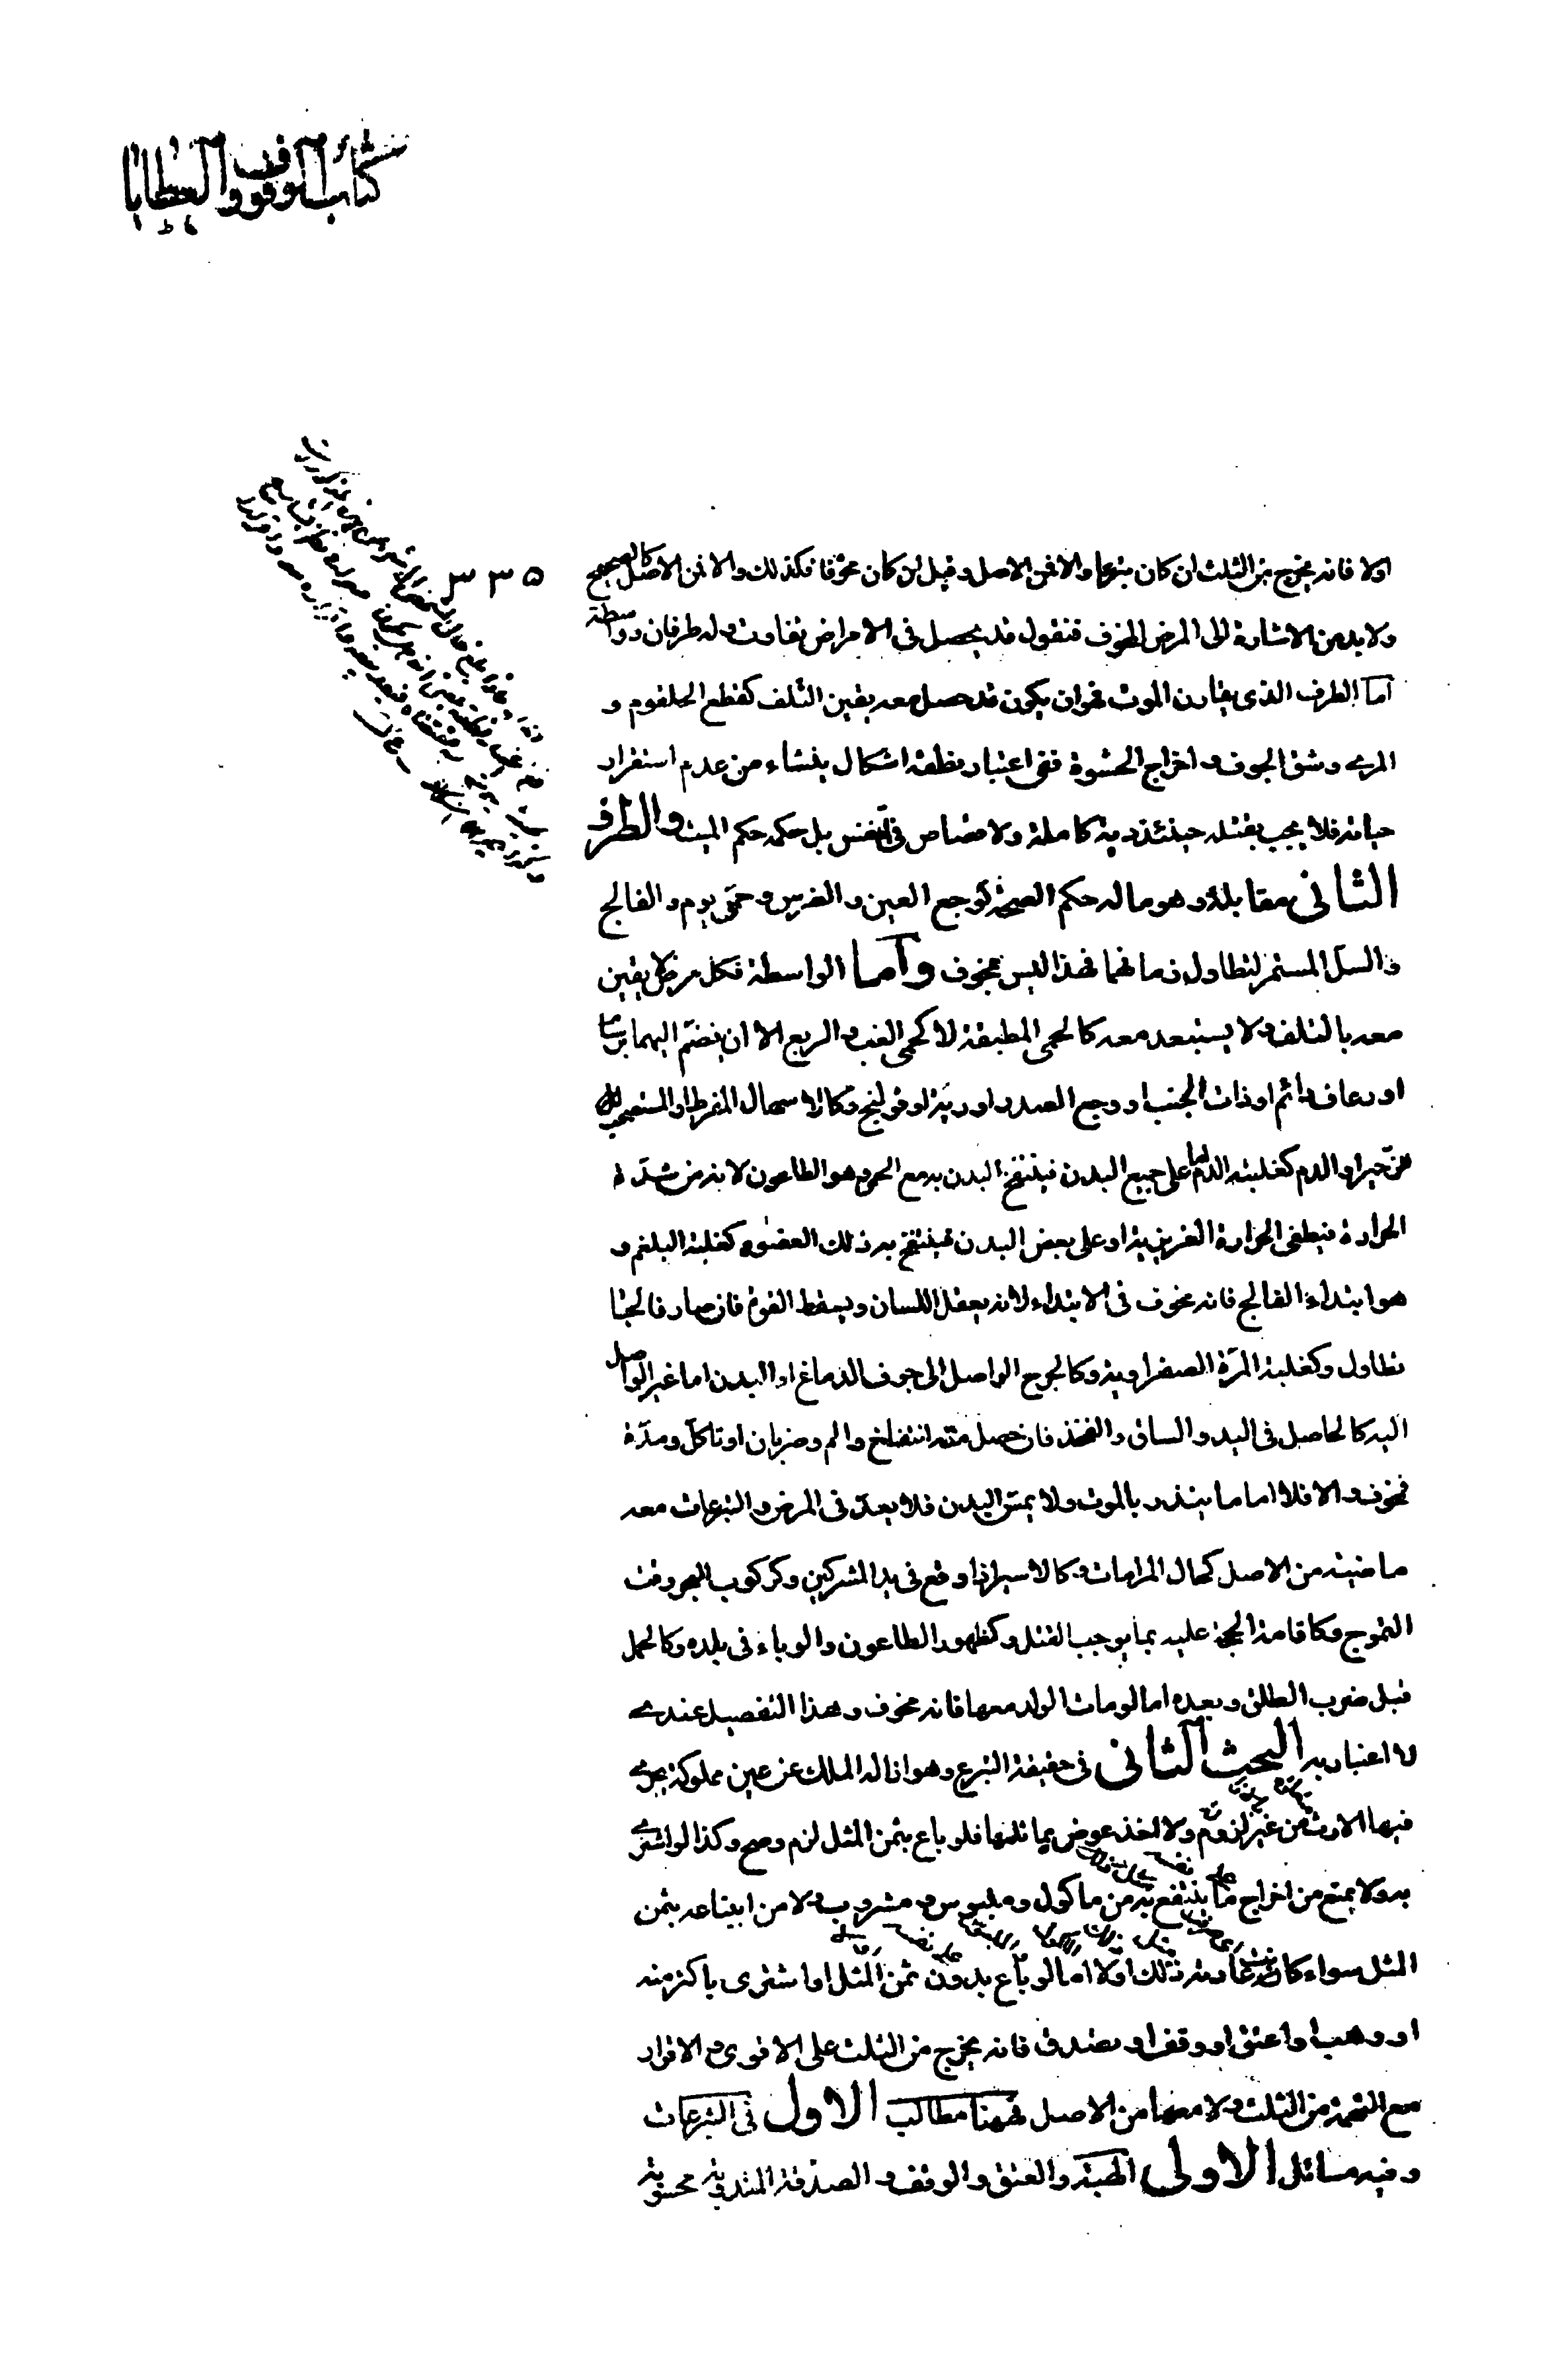 كتاب الوقوف والعطايا
٣٣٥
اولا فانه يخرج من الثلث ان كان متبرعا والا فمن الاصل وقيل ان كان مخوفا فكذلك والا فمن الاصل كالصحيح
ولا بد من الاشارة الى المرض المخوف فنقول قد يحصل فى الامراض تفاوت وله طرفان وواسطة
اما الطرف الذى يقارن الموت فهو ان يكون قد حصل معه يقين التلف كقطع الحلقوم و
المرى وشق الجوف واخراج الحشوة ففى اعتبار نطقه اشكال ينشاء من عدم استقرار
حياته فلا يجب بقتله حينئذ دية كاملة ولا قصاص فى النفس بل حكمه حكم الميت والطرف
الثانى مقابله وهو ما له حكم الصحة كوجع العين والضرس وحمى يوم والفالج
والسل المستمر لتطاول زمانهما فهذا ليس بمخوف واما الواسطة فكل مرض لا يقين
معه بالتلف ولا يستبعد معه كالحمى المطبقة لا كحمى الغب والربع الا ان ينضم اليهما برسام
او رعاف دائم او ذات الجنب او وجع الصدر او رية او قولنج وكالاسهال المفرط او المستصحب
للزحير او الدم كغلبة الدم اما على جميع البدن فينتفخ البدن به مع الحمى وهو الطاعون لانه من شدة
الحرارة فيطفى الحرارة الغريزية او على بعض البدن فينتفخ به ذلك العضو وكغلبة البلغم و
هو ابتداء الفالج فانه مخوف فى الابتداء لانه يعقل اللسان ويسقط القوة فان صار فالجا
تطاول وكغلبة المرة الصفراوية وكالجرح الواصل الى جوف الدماغ او البدن اما غير الواصل
اليه كالحاصل فى اليد والساق والفخذ فان حصل منه انتفاخ والم وضربان او تاكل ومدة
فمخوف والا فلا اما ما ينذر بالموت ولا يمس البدن فلا يعد فى المرض والتبرعات معه
ماضية من الاصل كحال المرامات وكالاسير اذا وقع فى يد المشركين وكركوب البحر وقت
التموج وكاقامة الحجة عليه بما يوجب القتل وكظهور الطاعون والوباء فى بلده وكالحمل
قبل ضرب الطلق وبعده اما لو مات الولد معها فانه مخوف وهذا التفصيل عندى
لا اعتبار به البحث الثانى فى حقيقة التبرع وهو ازالة الملك عن عين مملوكة يجرى
فيها الارث من غير لزوم ولا اخذ عوض يماثلها فلو باع بثمن المثل لزم وصح وكذا لو اشترى
به ولا يمنع من اخراج ما ينتفع به من ماكول وملبوس ومشروب ولا من ابتياعه بثمن
المثل سواء كان عادته ذلك اولا اما لو باع بدون ثمن المثل او اشترى باكثر منه
او وهب او اعتق او وقف او تصدق فانه يخرج من الثلث على الاقوى والاقرار
مع التهمة من الثلث ولا معها من الاصل فههنا مطالب الاول فى التبرعات
وفيه مسائل الاولى الهبة والعتق والوقف والصدقة المندوبة محسوبة